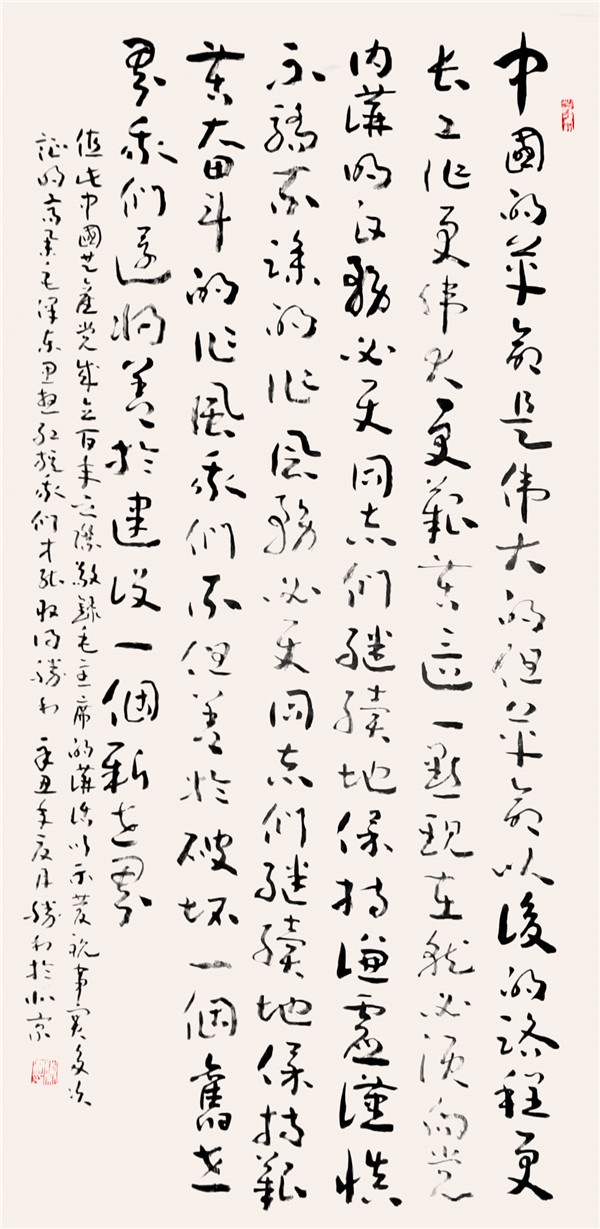 中國的革命是偉大的但革命以後的路程更
长工作更偉大更艱苦這一點現在就必須向党
内講明白務必使同志們继續地保持謙虚謹慎
不驕不躁的作風務必使同志們继續地保持艱
苦奋斗的作風我們不但善於破坏一個舊世
界我們還將善於建设一個新世界
值此中國共產党成立百年之際敬錄毛主席的講話以示慶祝事實多次
証明高举毛澤东思想红旗我們才能取得勝利 辛丑年夏月勝利於北京